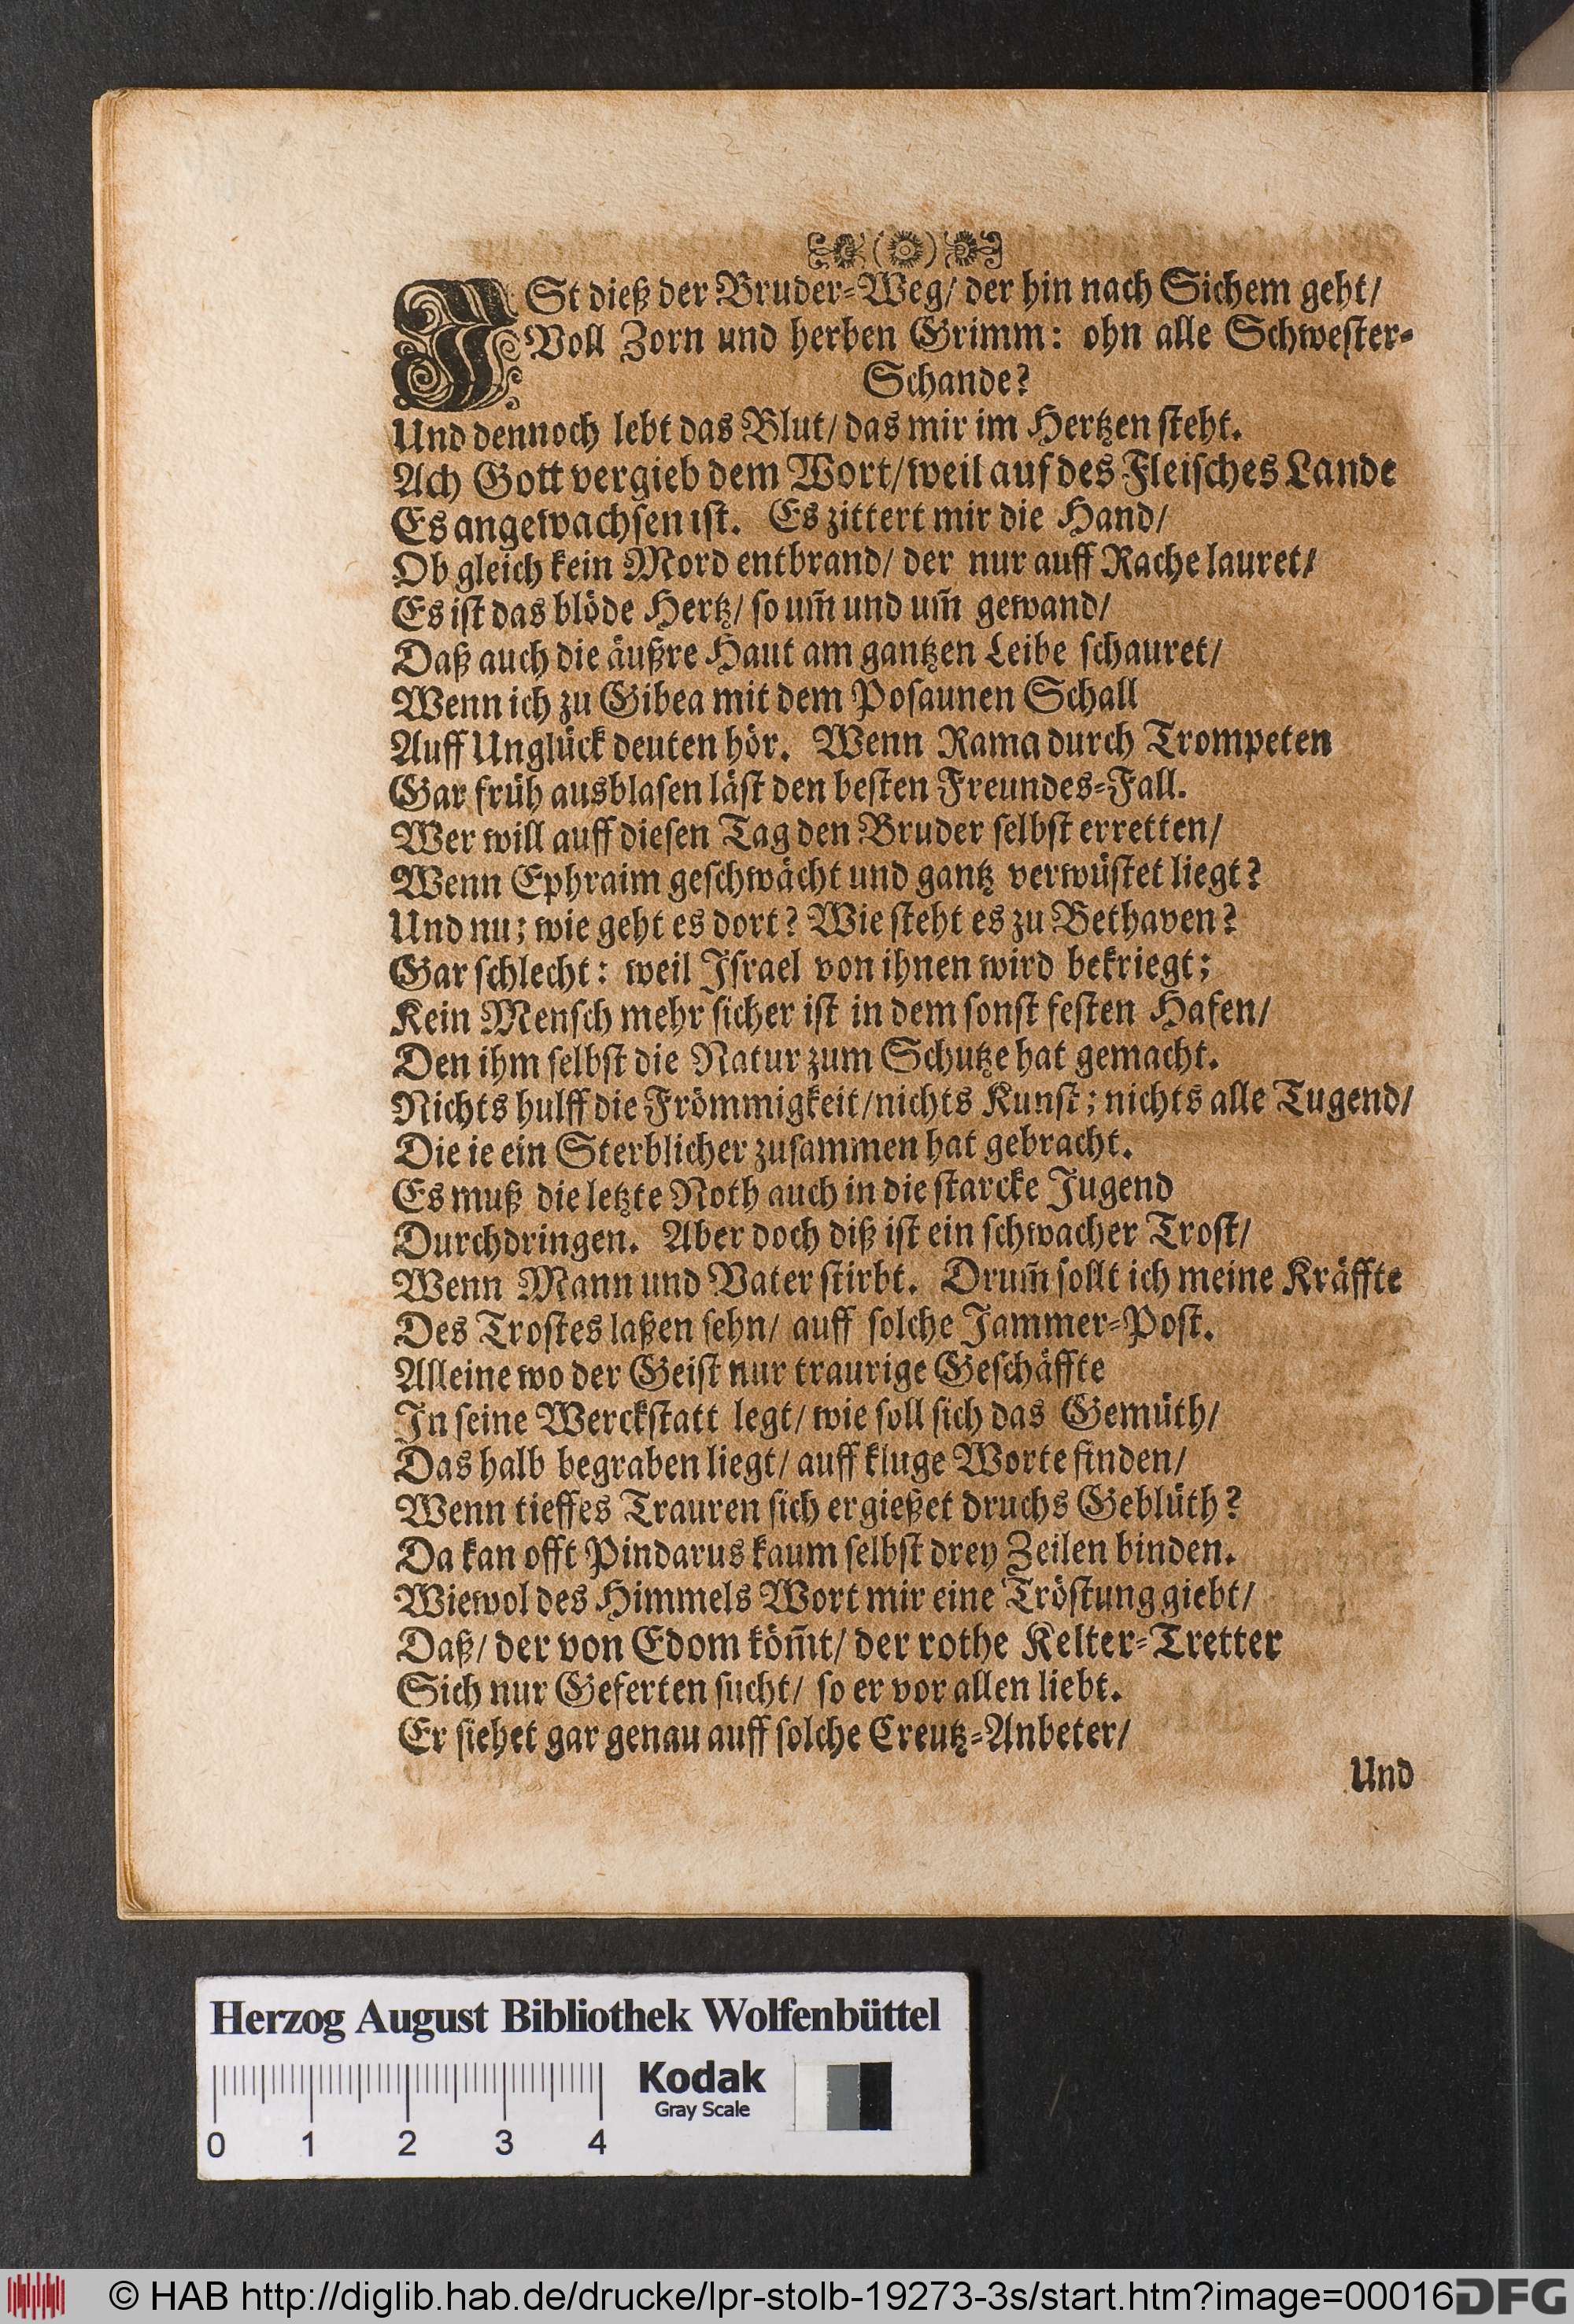 ISt dieß der Bruder-Weg/ der hin nach Sichem geht/
Voll Zorn und herben Grimm: ohn alle Schwester-
Schande?
Und dennoch lebt das Blut/ das mir im Hertzen steht.
Ach Gott vergieb dem Wort/ weil auf des Fleisches Lande
Es angewachsen ist. Es zittert mir die Hand/
Ob gleich kein Mord entbrand/ der nur auff Rache lauret/
Es ist das blöde Hertz/ so um̃ und um̃ gewand/
Daß auch die äußre Haut am gantzen Leibe schauret/
Wenn ich zu Gibea mit dem Posaunen Schall
Auff Unglück deuten hör. Wenn Rama durch Trompeten
Gar früh ausblasen läst den besten Freundes-Fall.
Wer will auff diesen Tag den Bruder selbst erretten/
Wenn Ephraim geschwächt und gantz verwüstet liegt?
Und nu; wie geht es dort? Wie steht es zu Bethaven?
Gar schlecht: weil Israel von ihnen wird bekriegt;
Kein Mensch mehr sicher ist in dem sonst festen Hafen/
Den ihm selbst die Natur zum Schutze hat gemacht.
Nichts hulff die Frömmigkeit/ nichts Kunst; nichts alle Tugend/
Die ie ein Sterblicher zusammen hat gebracht.
Es muß die letzte Noth auch in die starcke Jugend
Durchdringen. Aber doch diß ist ein schwacher Trost/
Wenn Mann und Vater stirbt. Drum̃ sollt ich meine Kräffte
Des Trostes laßen sehn/ auff solche Jammer-Post.
Alleine wo der Geist nur traurige Geschäffte
In seine Werckstatt legt/ wie soll sich das Gemüth/
Das halb begraben liegt/ auff kluge Worte finden/
Wenn tieffes Trauren sich ergießet druchs Geblüth?
Da kan offt Pindarus kaum selbst drey Zeilen binden.
Wiewol des Himmels Wort mir eine Tröstung giebt/
Daß/ der von Edom köm̃t/ der rothe Kelter-Tretter
Sich nur Geferten sucht/ so er vor allen liebt.
Er siehet gar genau auff solche Creutz-Anbeter/
Und
Herzog August Bibliothek Wolfenbüttel
Kodak
Gray Scale
0 1 2 3 4
© HAB http://diglib.hab.de/drucke/lpr-stolb-19273-3s/start.htm?image=00016
DFG